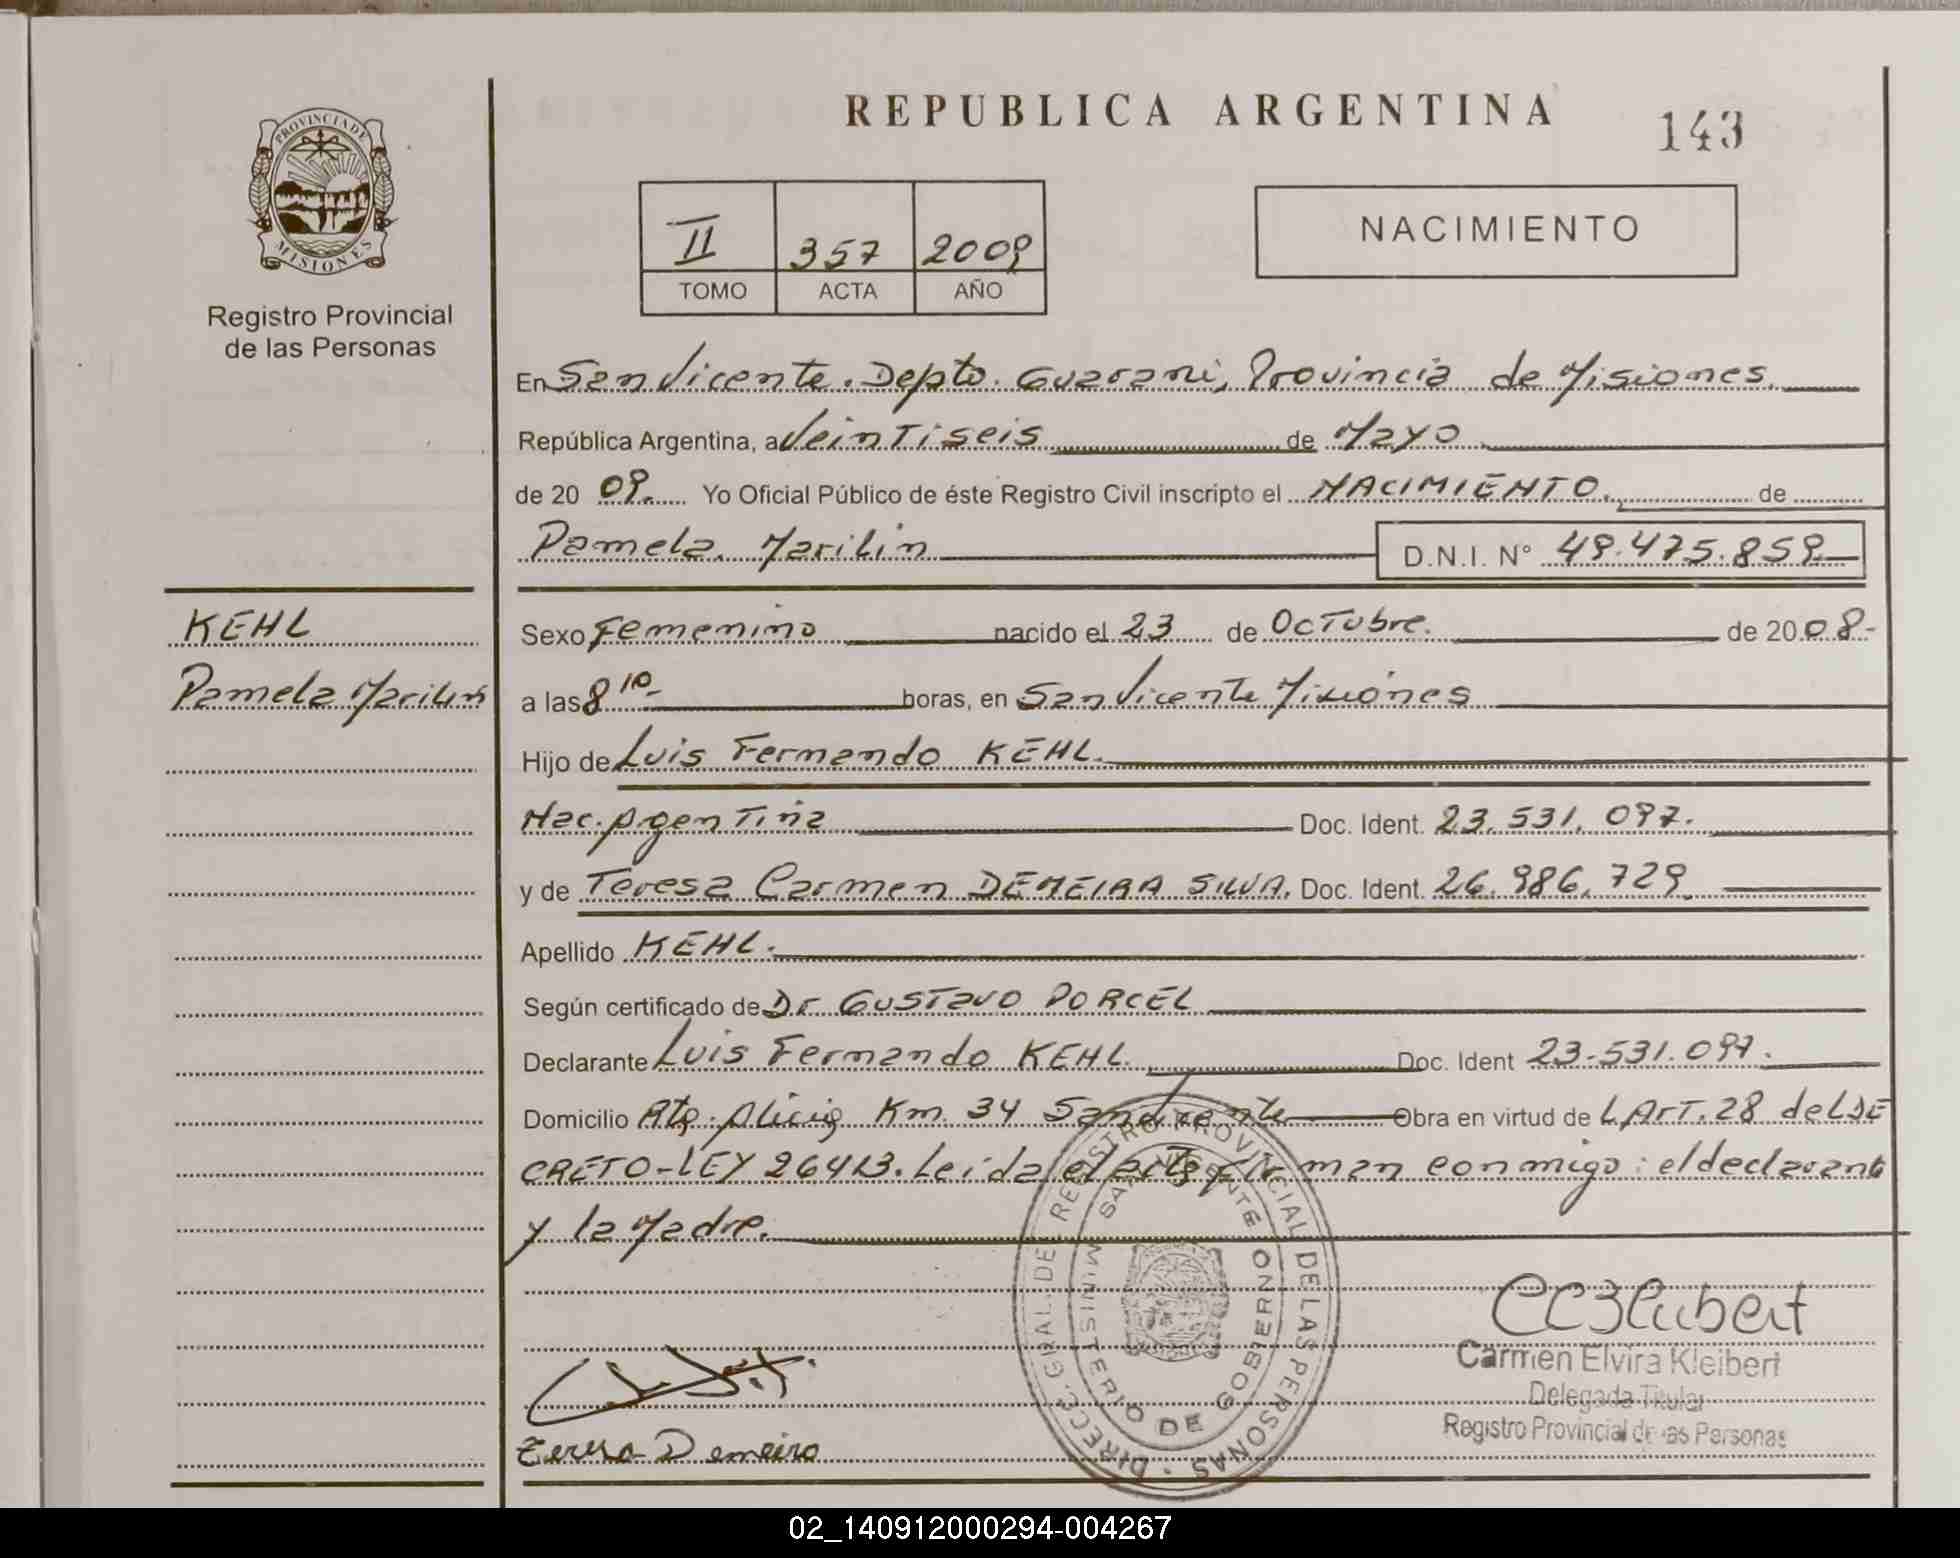 REPUBLICA ARGENTINA
143
PROVINCIA DE
MISIONES
Registro Provincial
de las Personas
II 357 2009
TOMO ACTA AÑO
NACIMIENTO
En San Vicente. Depto. Guarani, Provincia de Misiones.
República Argentina, a Veintiseis de Mayo
de 20 09. Yo Oficial Público de éste Registro Civil inscripto el NACIMIENTO. de
Pamela Marilin D.N.I. N° 49.475.859
KEHL
Pamela Marilin
Sexo Femenino nacido el 23 de Octubre. de 20 08-
a las 8 10 horas, en San Vicente Misiones
Hijo de Luis Fernando KEHL.
Nac. Agentina Doc. Ident. 23.531.097.
y de Teresa Carmen DEMEIRA SILVA. Doc. Ident. 26.986.729
Apellido KEHL.
Según certificado de Dr GUSTAVO PORCEL
Declarante Luis Fernando KEHL. Doc. Ident 23-531.097.
Domicilio Rta. Alicia Km. 34 San Vicente Obra en virtud de L ArT. 28 del DE
CRETO-LEY 26413. Leida el acta firman conmigo: el declarante
y la Madre.
DIRECC. GRAL. DE REGISTRO PROVINCIAL DE LAS PERSONAS
SAN VICENTE
MINISTERIO DE GOBIERNO
Carmen Elvira Kleibert
Delegada Titular
Registro Provincial de las Personas
Teresa Demeira
02_140912000294-004267